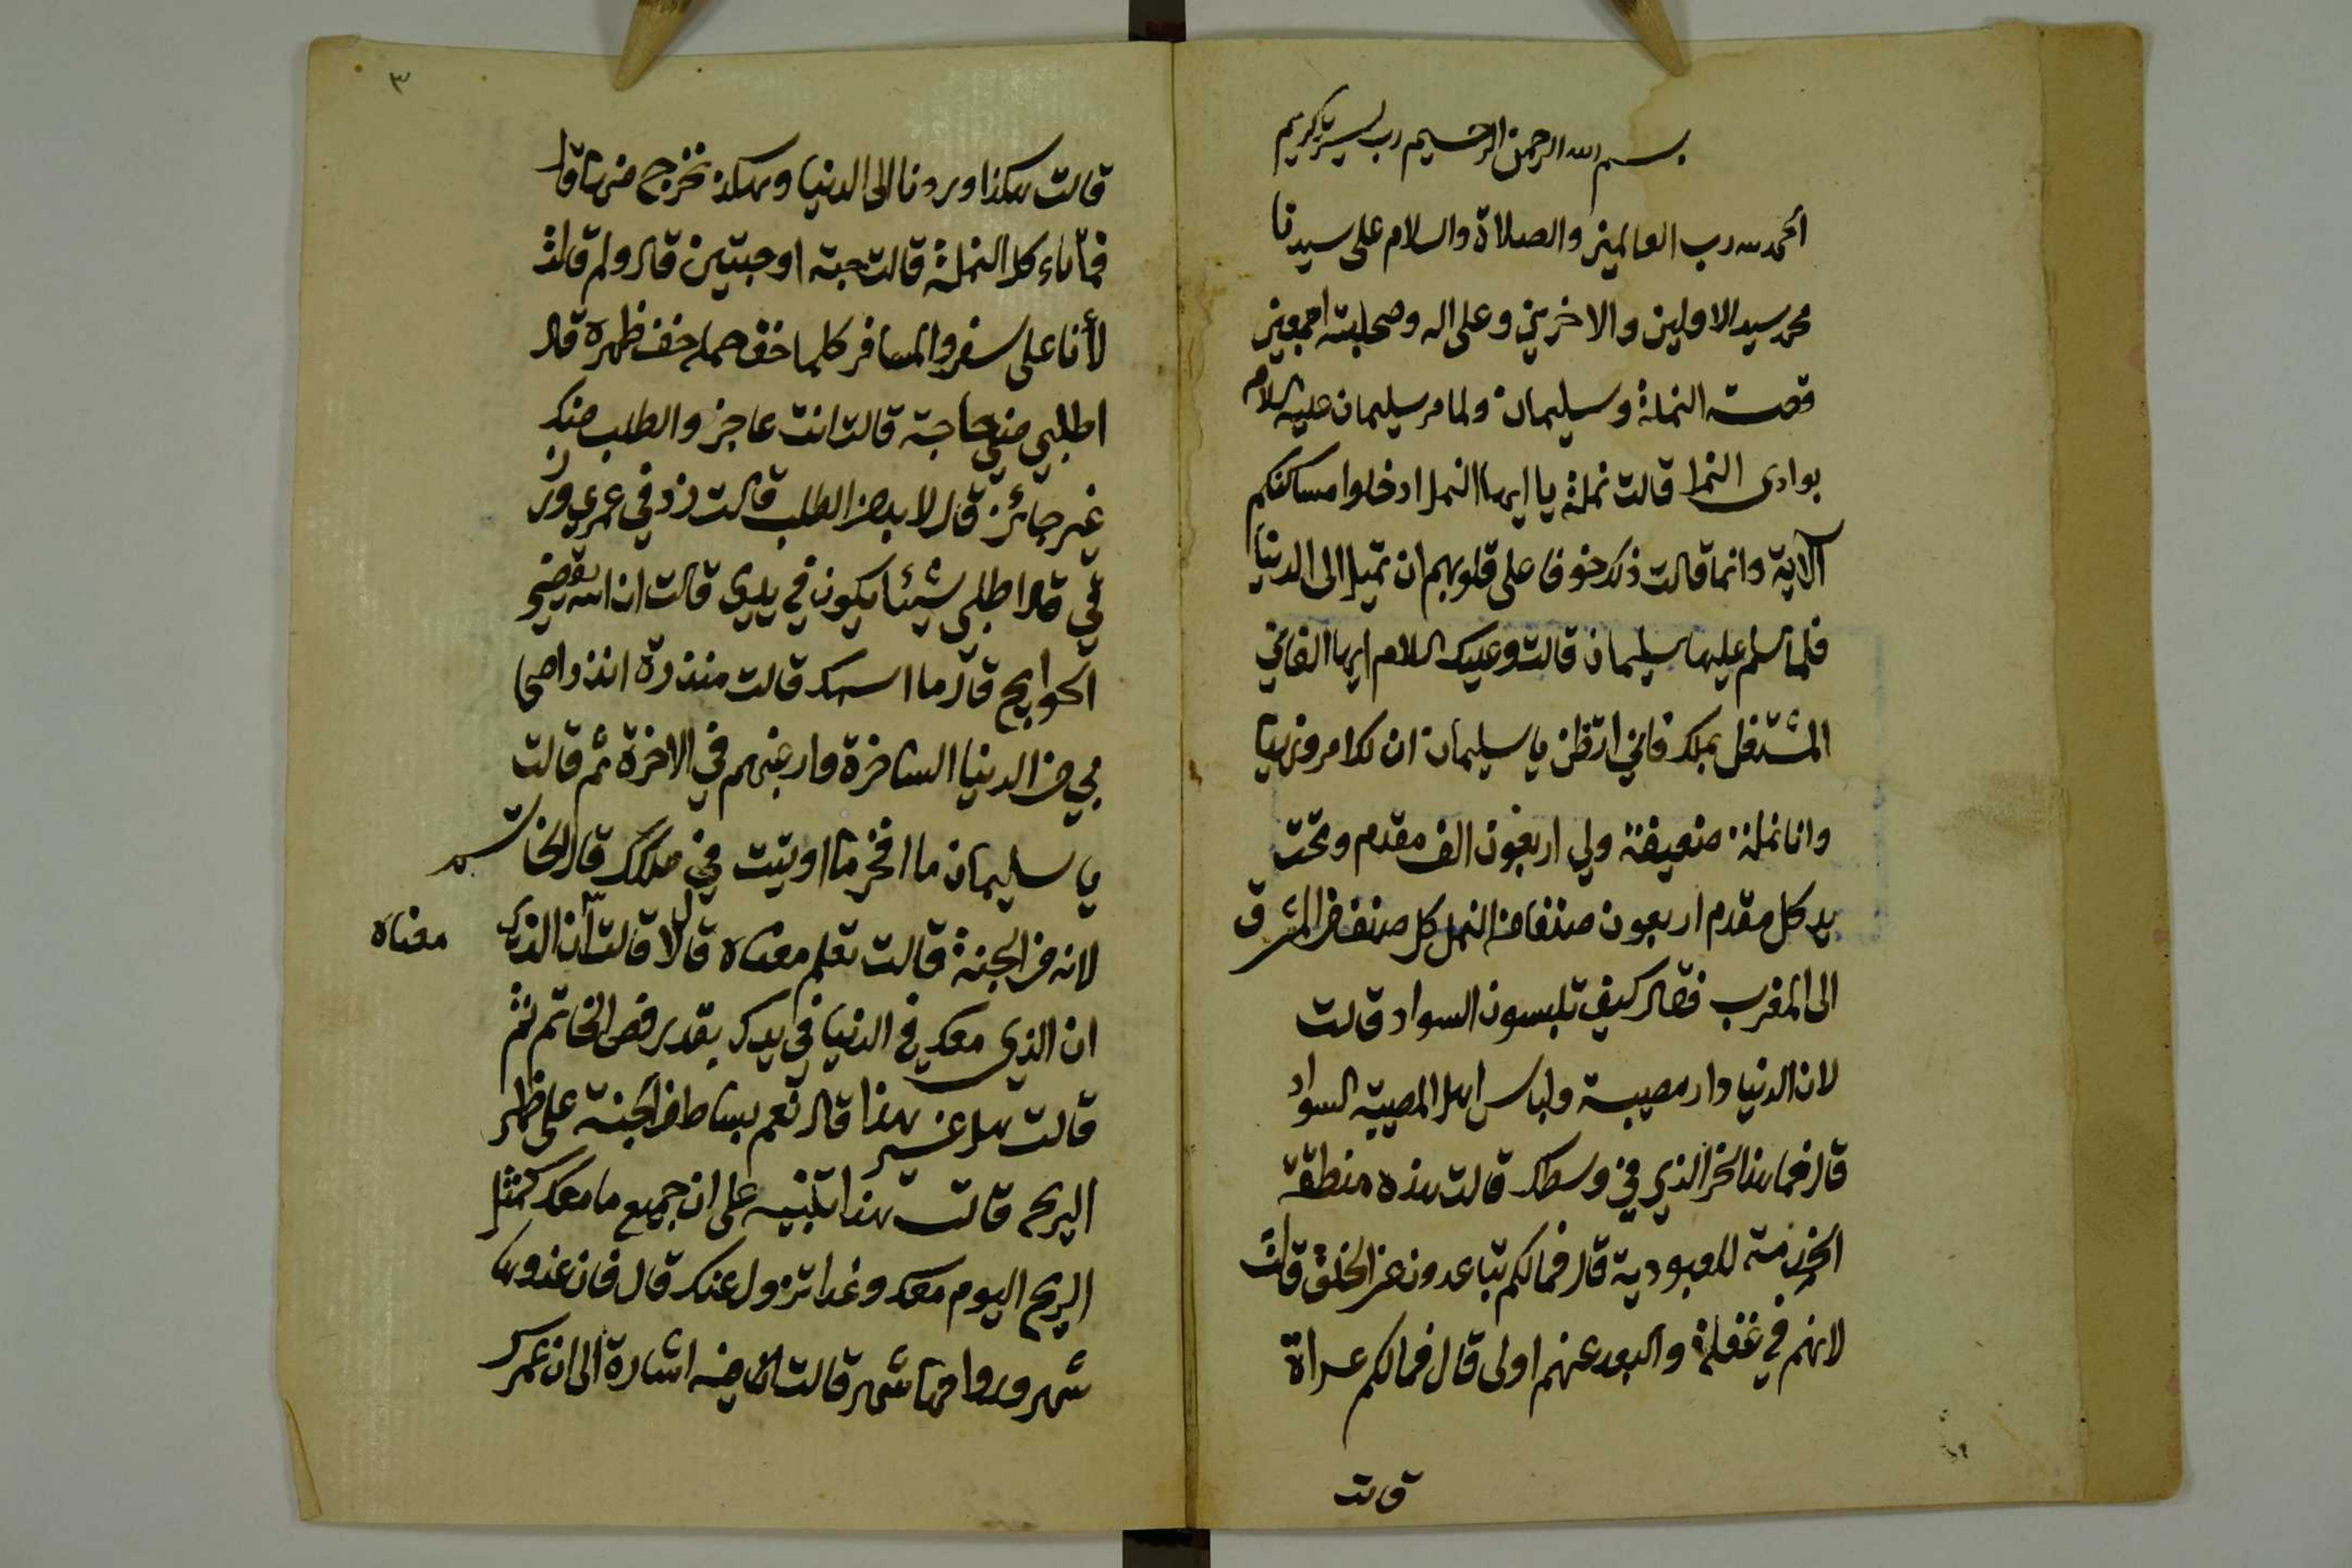 بسم الله الرحمن الرحيم رب يسر يا كريم
الحمد لله رب العالمين والصلاة والسلام على سيدنا
محمد سيد الاولين والاخرين وعلى اله وصحابته اجمعين
قصة النملة وسليمان ولما مر سليمان عليه السلام
بوادى النمل قالت نملة يا ايها النمل ادخلوا مساكنكم
الآية وانما قالت ذلك خوفا على قلوبهم ان تميل الى الدنيا
فلما سلم عليها سليمان قالت وعليك السلام ايها الفاني
المشتغل بملك فاني اتظن يا سليمان ان لك امر ونهيا
وانا نملة ضعيفة ولي اربعون الف مقدم وتحت
يد كل مقدم اربعون صنفا من النمل كل صنف من المشرق
الى المغرب فقال كيف تلبسون السواد قالت
لان الدنيا دار مصيبة ولباس اهل المصيبة السواد
قال فما هذا الحز الذي في وسطك قالت هذه منطقة
الخدمة للعبودية قال فما لكم تباعدون عن الخلق قالت
لانهم في غفلة والبعد عنهم اولى قال فما لكم عراة
قالت
٣
قالت هكذا وردنا الى الدنيا وهكذا نخرج منها قال
فما تاءكل النملة قالت حبة او حبتين قال ولم قالت
لأنا على سفر والمسافر كلما خف حمله خف ظهره قال
اطلبي مني حاجة قالت انت عاجز والطلب منك
غير جائز قال لا بد من الطلب قالت زد في عمري ورز
قي قال اطلبي شيئا يكون في يدي قالت ان الله يقضي
الحوايج قال ما اسمك قالت منذرة انذر اصحا
بي من الدنيا الساخرة وارغبهم في الاخرة ثم قالت
يا سليمان ما افخر ما اوتيت في ملكك قال الخاتم
لانه من الجنة قالت تعلم معناه قال لا قالت ان الذي
معناه
ان الذي معك في الدنيا في يدك بقدر فص الخاتم ثم
قالت هل غير هذا قال نعم بساط من الجنة على ظهر
الريح قالت هذا تنبيه على ان جميع ما معك كمثل
الريح اليوم معك وغدا تزول عنك قال فان غدوها
شهر ورواحها شهر قالت اشارة الى ان عمرك